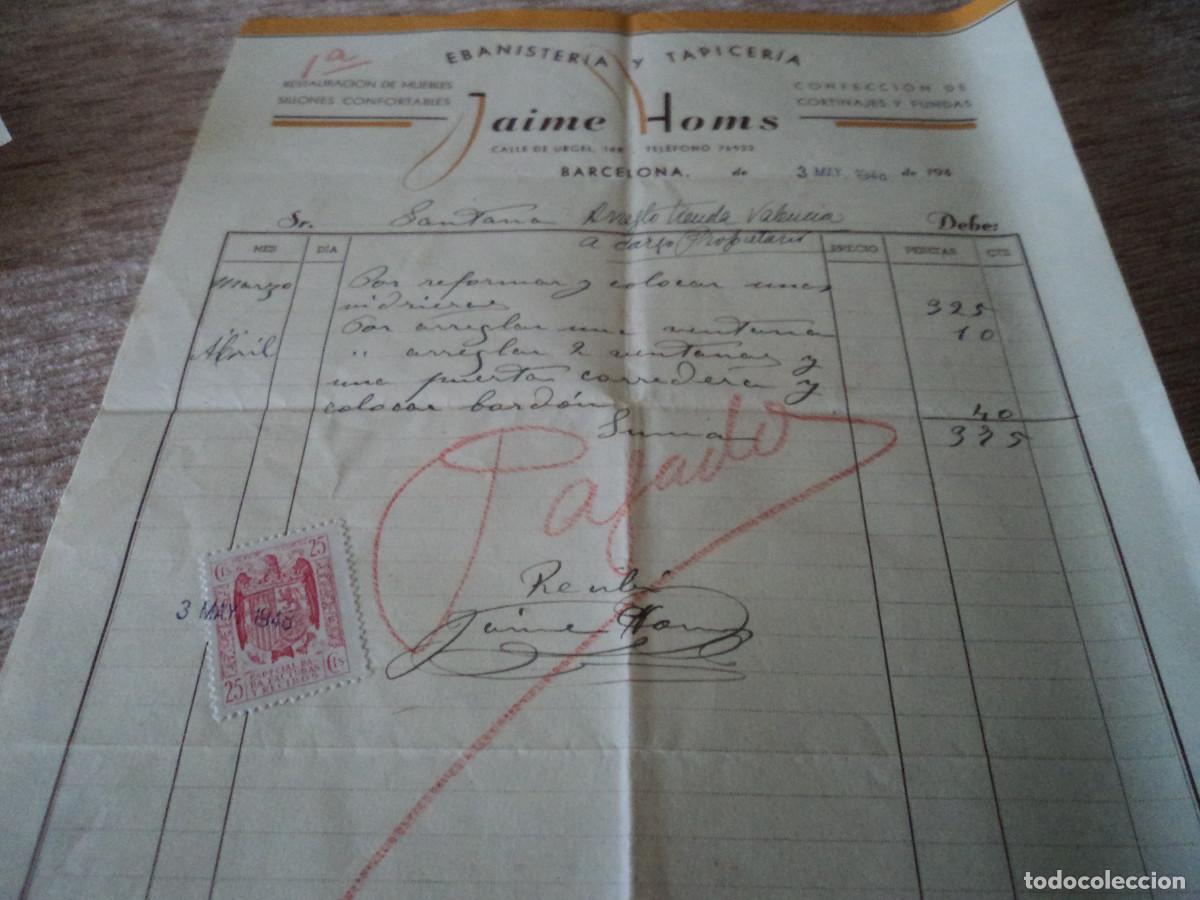 1ª
EBANISTERÍA y TAPICERÍA
RESTAURACION DE MUEBLES
SILLONES CONFORTABLES
CONFECCIÓN DE
CORTINAJES Y FUNDAS
Jaime Homs
CALLE DE URGEL, TELÉFONO
BARCELONA, de 3 MAY. 1946 de 194
Sr. Santana Arreglo tienda Valencia Debe:
a cargo Propietario
MES DIA PRECIO PESETAS CTS
Marzo Por reformar y colocar unas
vidrieras 325
Por arreglar una ventana 10
Abril " arreglar 2 ventanas y
una puerta corredera y
colocar bordón 40
Suma 375
Pagado
Recibí
Jaime Homs
25 Cts
3 MAY. 1946
ESPECIAL PA
RA FACTURAS
Y RECIBOS
25 Cts
todocoleccion